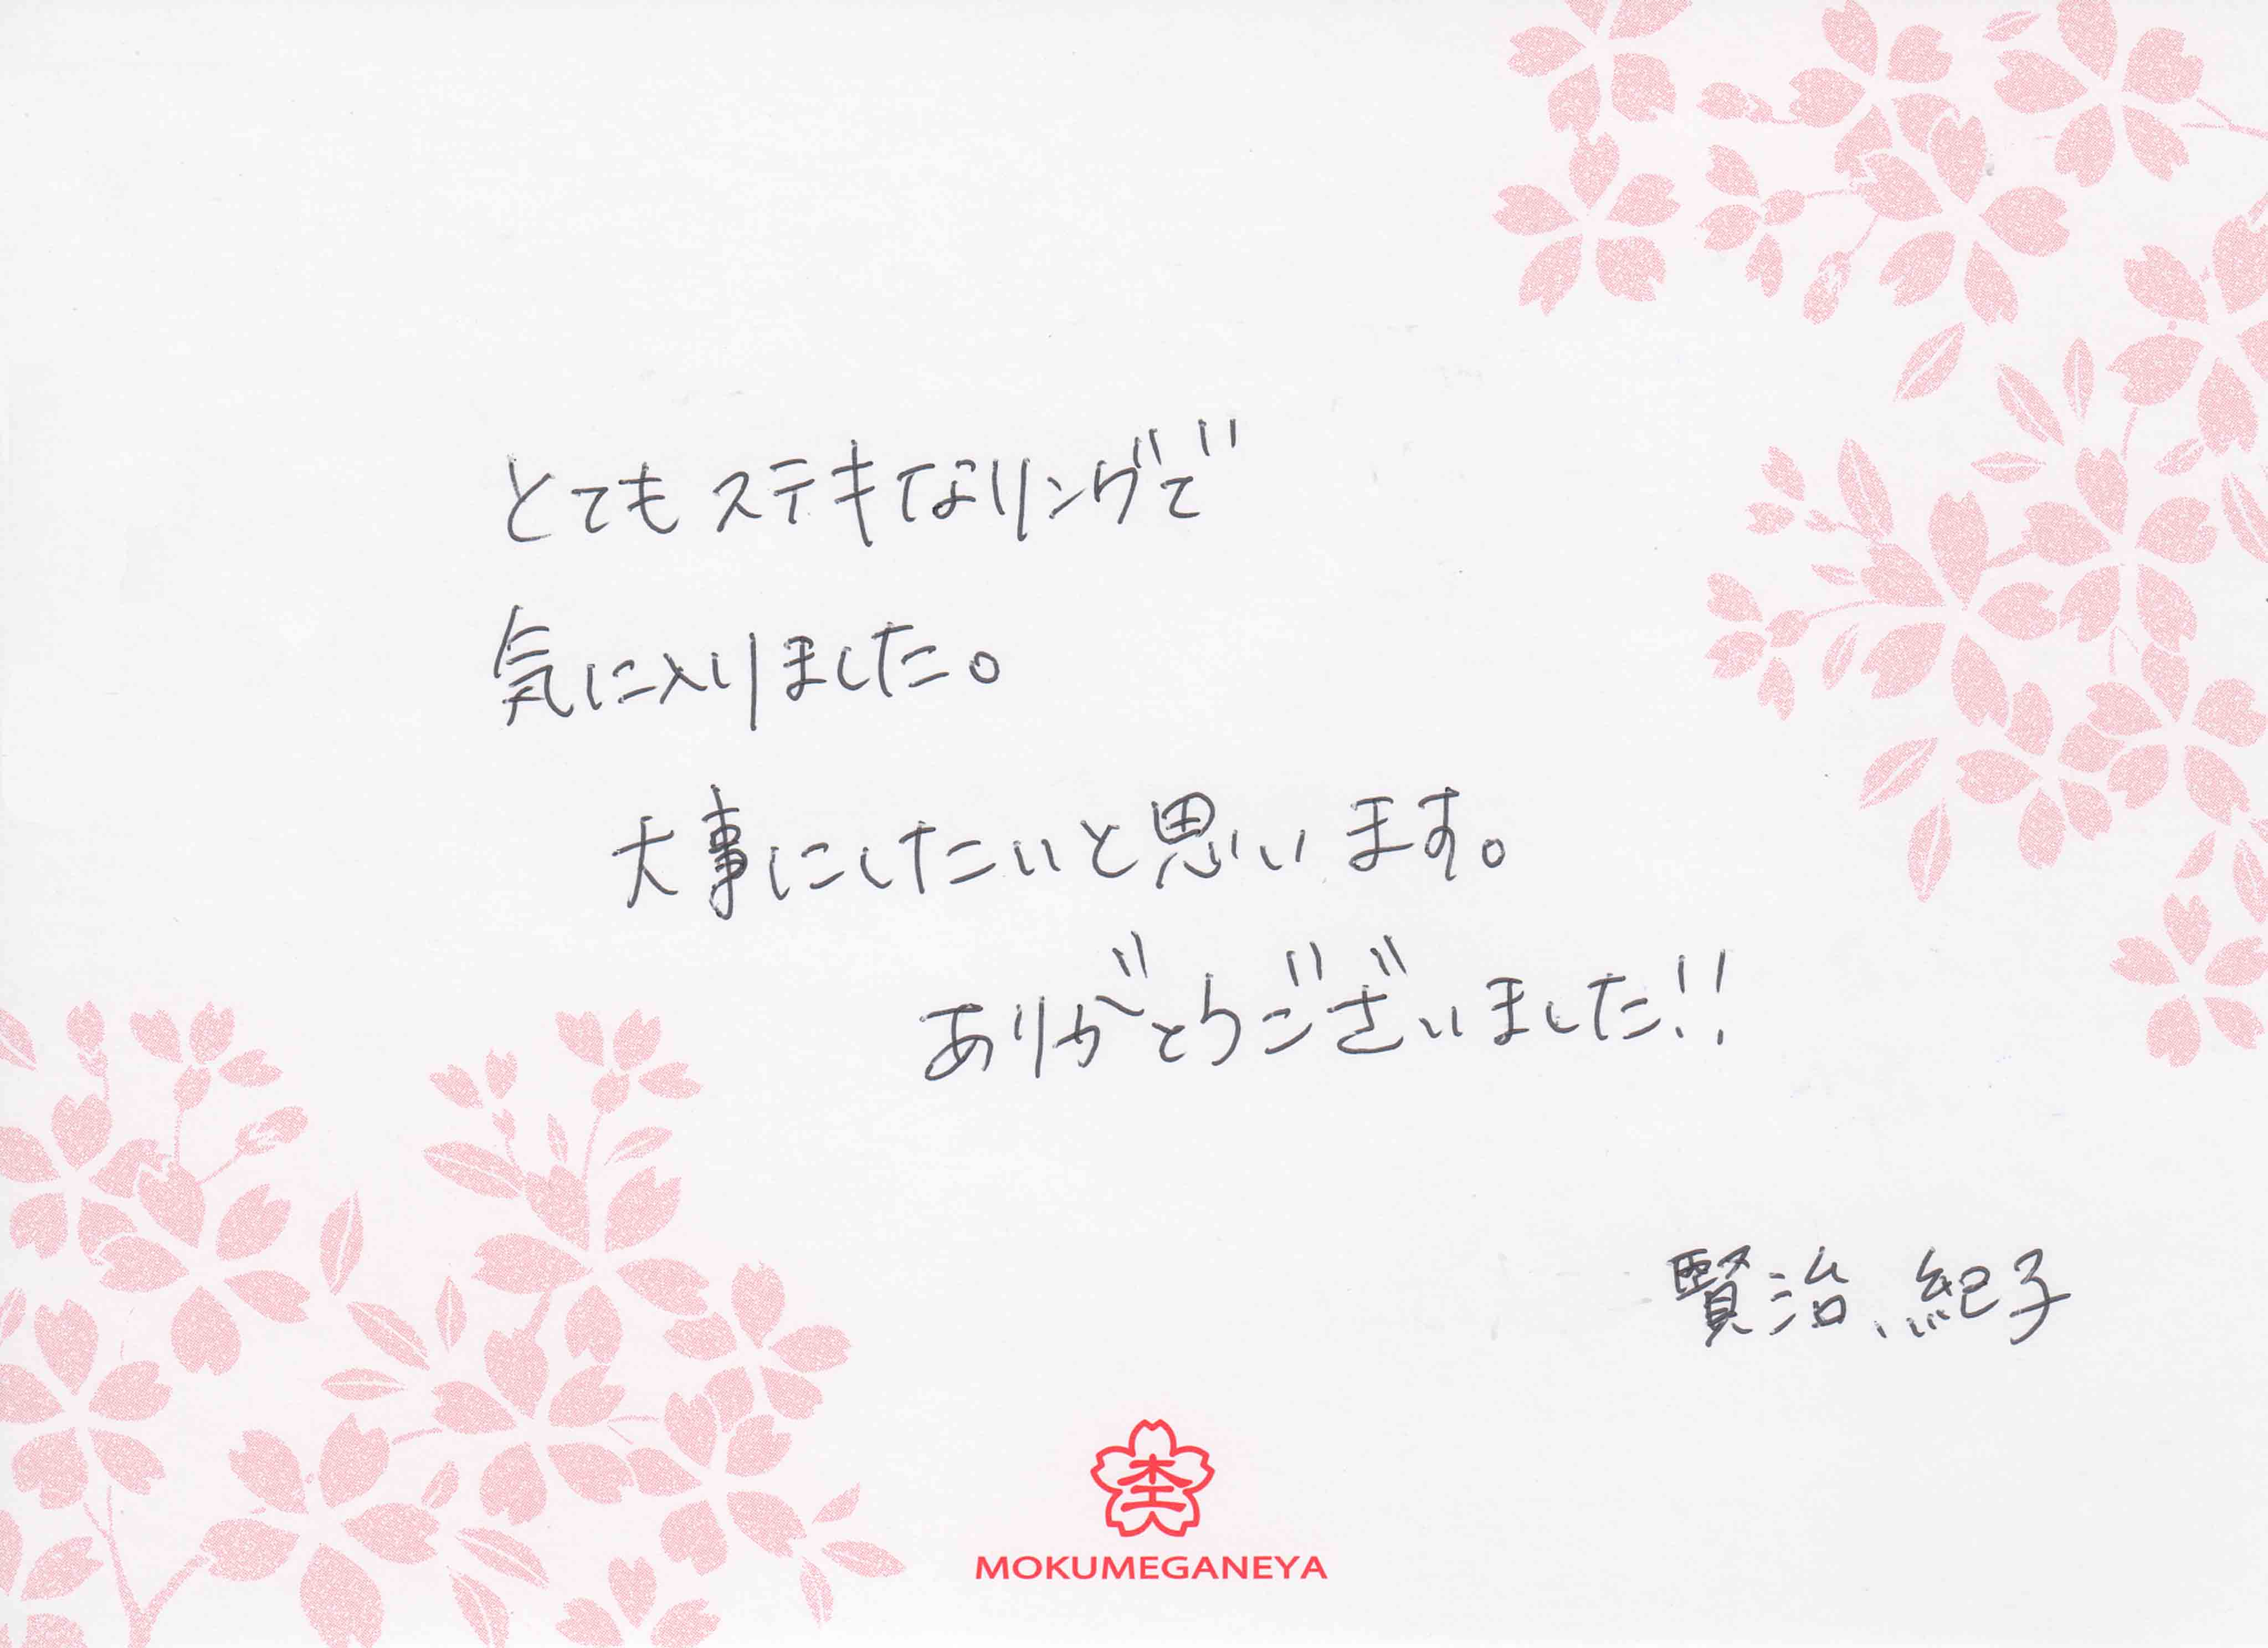 とてもステキなリングで
気に入りました。
大事にしたいと思います。
ありがとうございました!!
賢治、紀子
MOKUMEGANEYA